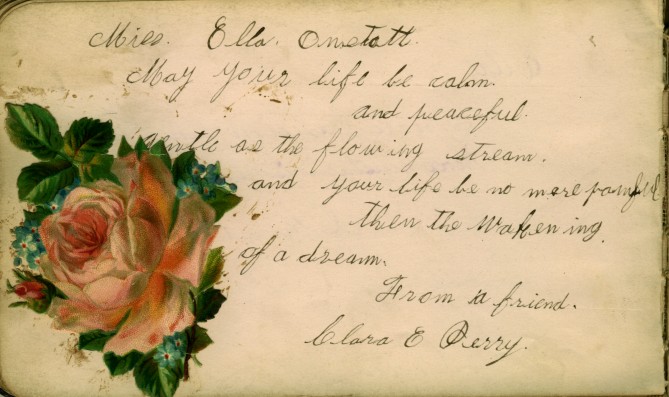 Miss. Ella. Omstott.
May your life be calm.
and peaceful.
gentle as the flowing stream.
and your life be no more painful
then the wakening
of a dream.
From a friend.
Clara E Perry.